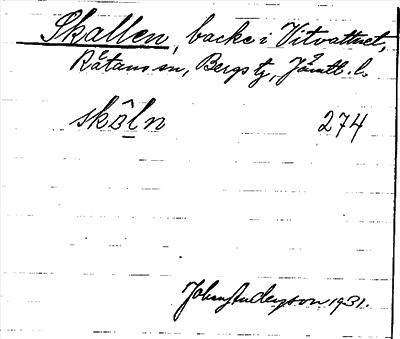 Skallen, backe i Vitvattnet,
Råtans sn, Bergs tg, Jämtl. l.
skôln 274
John Anderson 1931.